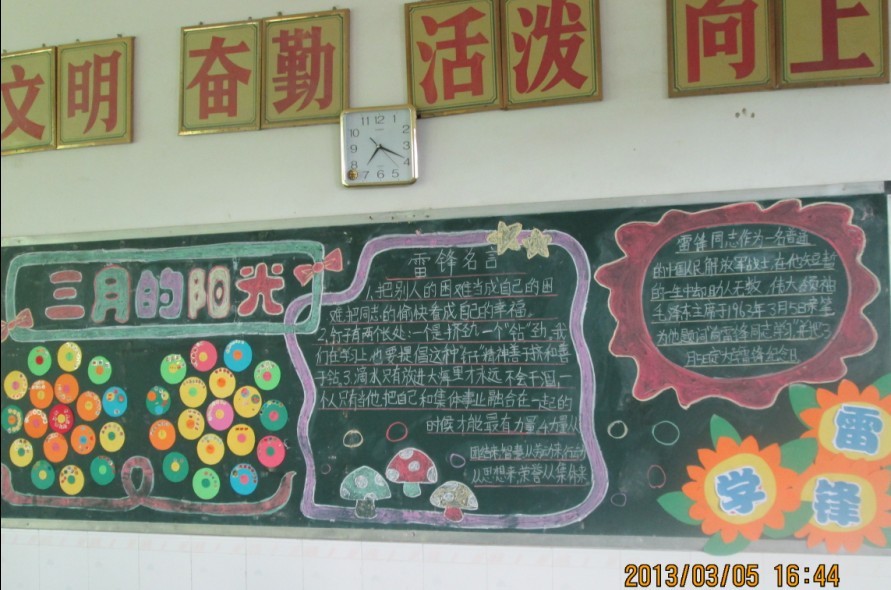 文明 奋勤 活泼 向上
11 12 1
10 2
9 3
8 4
7 6 5
三月的阳光
雷锋名言
1.把别人的困难当成自己的困
难把同志的愉快看成自己的幸福。
2.钉子有两个长处:一个是挤劲一个"钻"劲,我
们在学习上也要提倡这种"钉子"精神善于挤和善
于钻.3.滴水只有放进大海里才永远不会干涸,一
个人只有当他把自己和集体事业融合在一起的
时候才能最有力量.4.力量从
团结来,智慧从劳动来,行动
从思想来,荣誉从集体来
雷锋同志作为一名普通
的中国人民解放军战士,在他短暂
的一生中却助人无数 伟大领袖
毛泽东主席于1963年3月5日亲笔
为他题词"向雷锋同志学习"并把3
月5日
学
雷
锋
2013/03/05 16:44